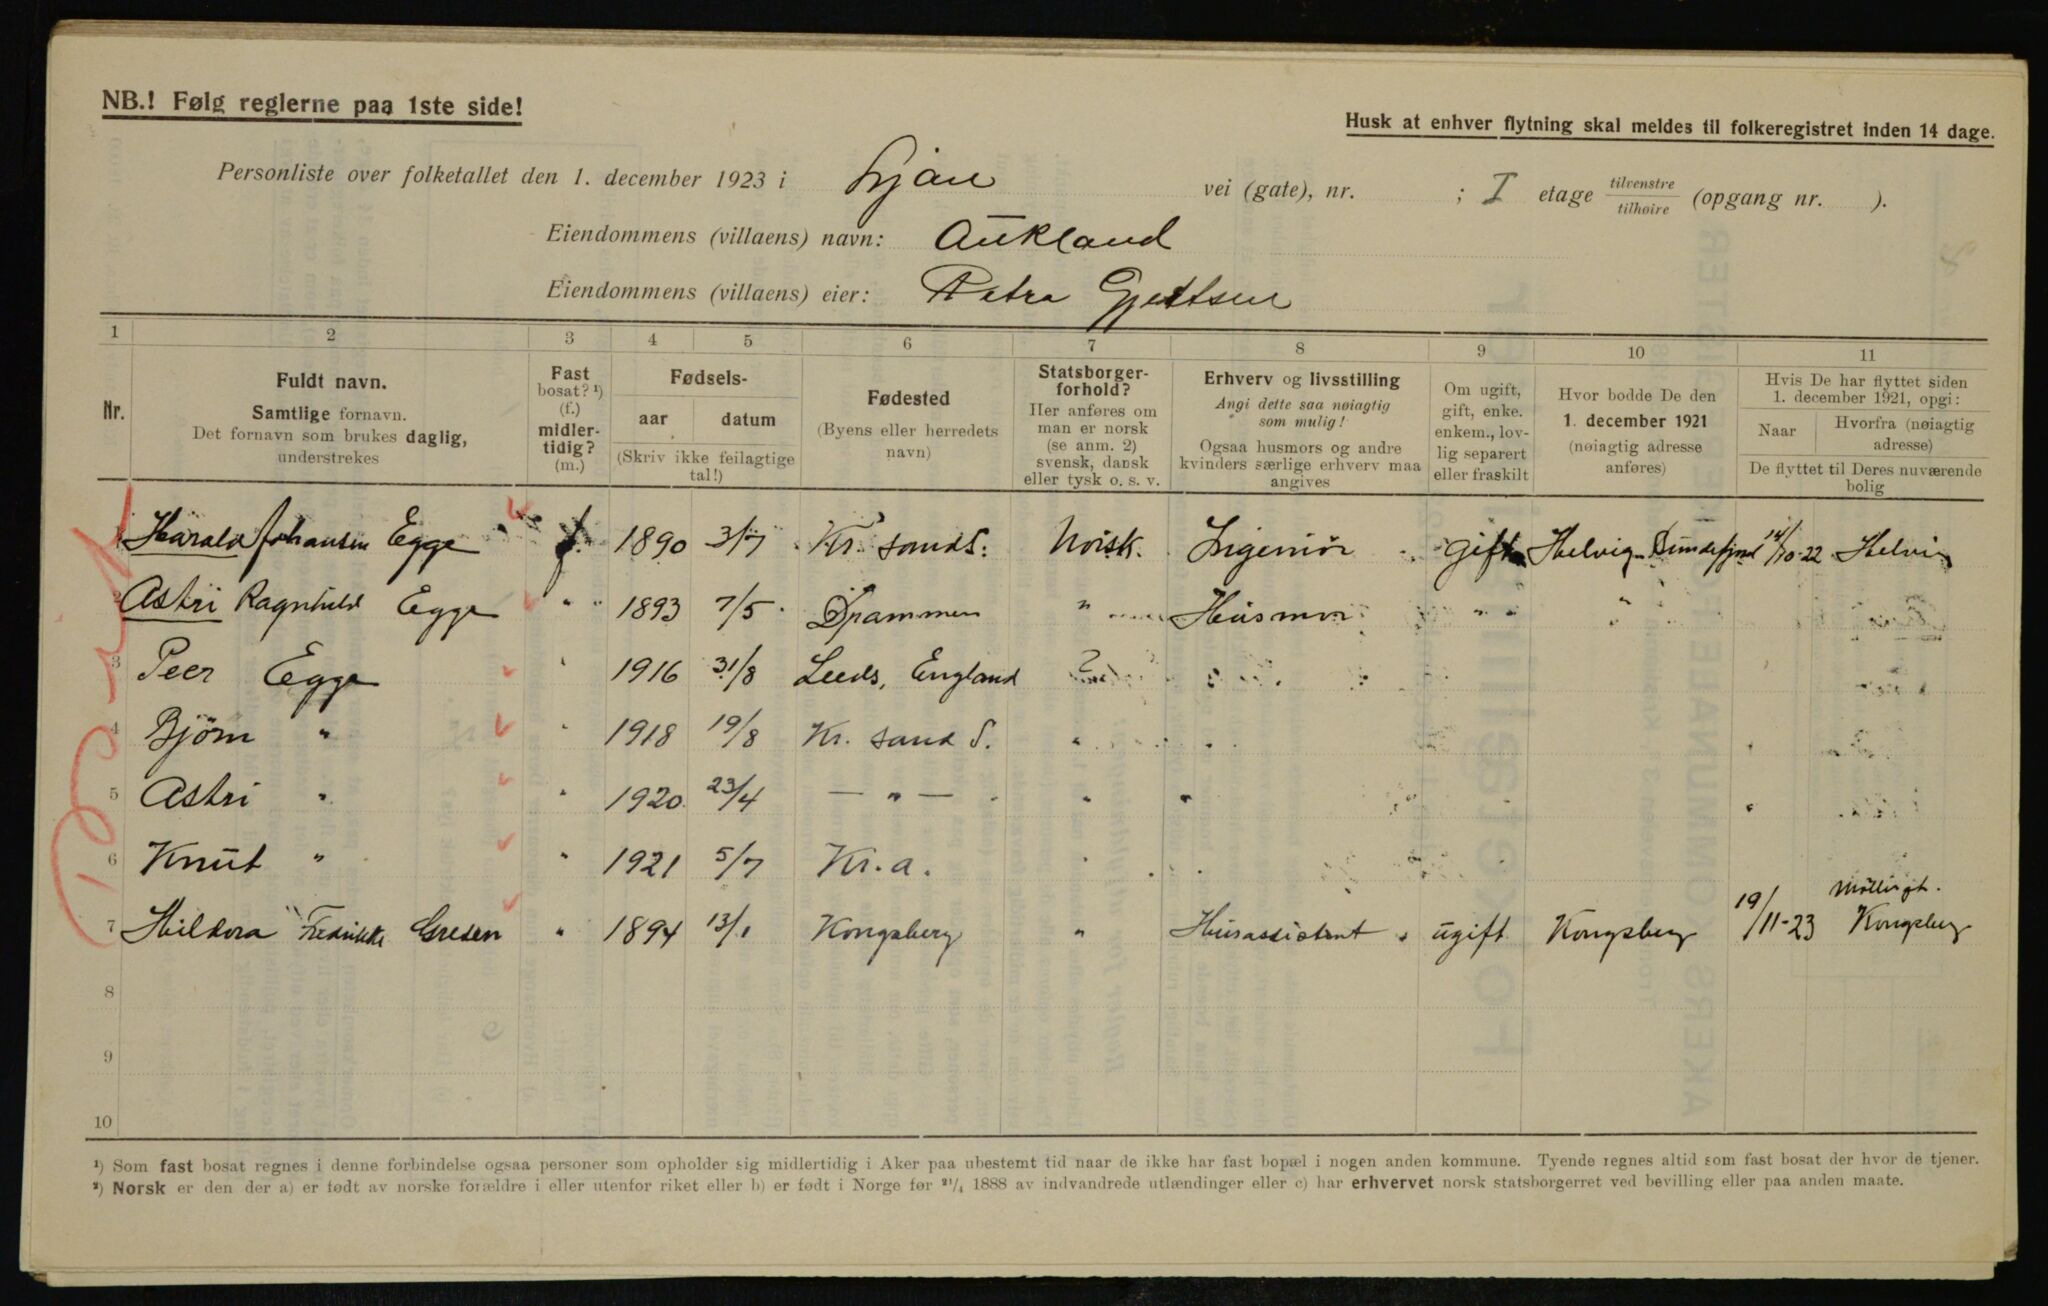 NB.! Følg reglerne paa 1ste side!
Husk at enhver flytning skal meldes til folkeregistret inden 14 dage.
Personliste over folketallet den 1. december 1923 i Ljan vei (gate), nr. ; I etage tilvenstre/tilhøire (opgang nr. ).
Eiendommens (villaens) navn: Aukland
Eiendommens (villaens) eier: Petra Gjettsen
1 2 3 4 5 6 7 8 9 10 11
Nr.
Fuldt navn.
Samtlige fornavn.
Det fornavn som brukes daglig,
understrekes
Fast
bosat? ¹)
(f.)
midler-
tidig?
(m.)
Fødsels-
aar datum
(Skriv ikke feilagtige
tal!)
Fødested
(Byens eller herredets
navn)
Statsborger-
forhold?
Her anføres om
man er norsk
(se anm. 2)
svensk, dansk
eller tysk o. s. v.
Erhverv og livsstilling
Angi dette saa nøiagtig
som mulig!
Ogsaa husmors og andre
kvinders særlige erhverv maa
angives
Om ugift,
gift, enke.
enkem., lov-
lig separert
eller fraskilt
Hvor bodde De den
1. december 1921
(nøiagtig adresse
anføres)
Hvis De har flyttet siden
1. december 1921, opgi:
Naar Hvorfra (nøiagtig
adresse)
De flyttet til Deres nuværende
bolig
1 Harald Johansen Egge f. 1890 3/7 Kr. sand S. Norsk. Ingeniør gift Helvig Bundefjord 14/10-22 Helvig
2 Astri Ragnhild Egge " 1893 7/5 Drammen " Husmor " " "
3 Peer Egge " 1916 31/8 Leeds, England
4 Bjørn " " 1918 19/8 Kr. sand S. "
5 Astri " " 1920 23/4 — " — "
6 Knut " " 1921 5/7 Kr.a. "
Møllergt.
7 Hildora Fredrikke Gresen " 1894 13/1 Kongsberg " Husassistent ugift Kongsberg 19/11-23 Kongsberg
8
9
10
¹) Som fast bosat regnes i denne forbindelse ogsaa personer som opholder sig midlertidig i Aker paa ubestemt tid naar de ikke har fast bopæl i nogen anden kommune. Tyende regnes altid som fast bosat der hvor de tjener.
²) Norsk er den der a) er født av norske forældre i eller utenfor riket eller b) er født i Norge før ²¹/₄ 1888 av indvandrede utlændinger eller c) har erhvervet norsk statsborgerret ved bevilling eller paa anden maate.